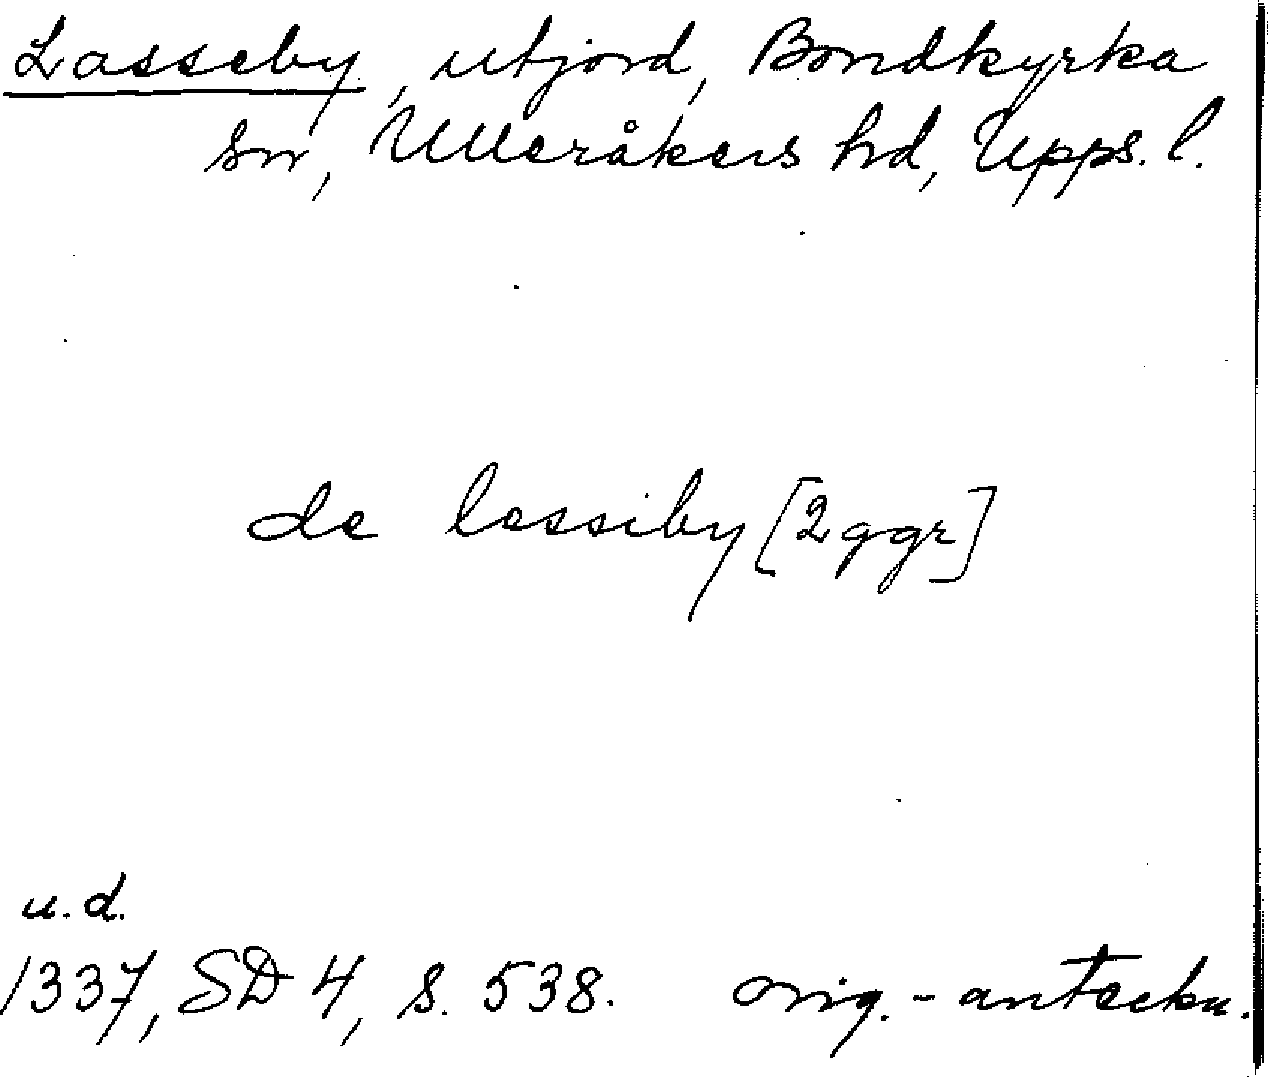 Lasseby, utjord, Bondkyrka
sn, Ulleråkers hd, Upps. l.
de lessiby [2 ggr]
u.d.
1337, SD 4, s. 538. orig.-anteckn.